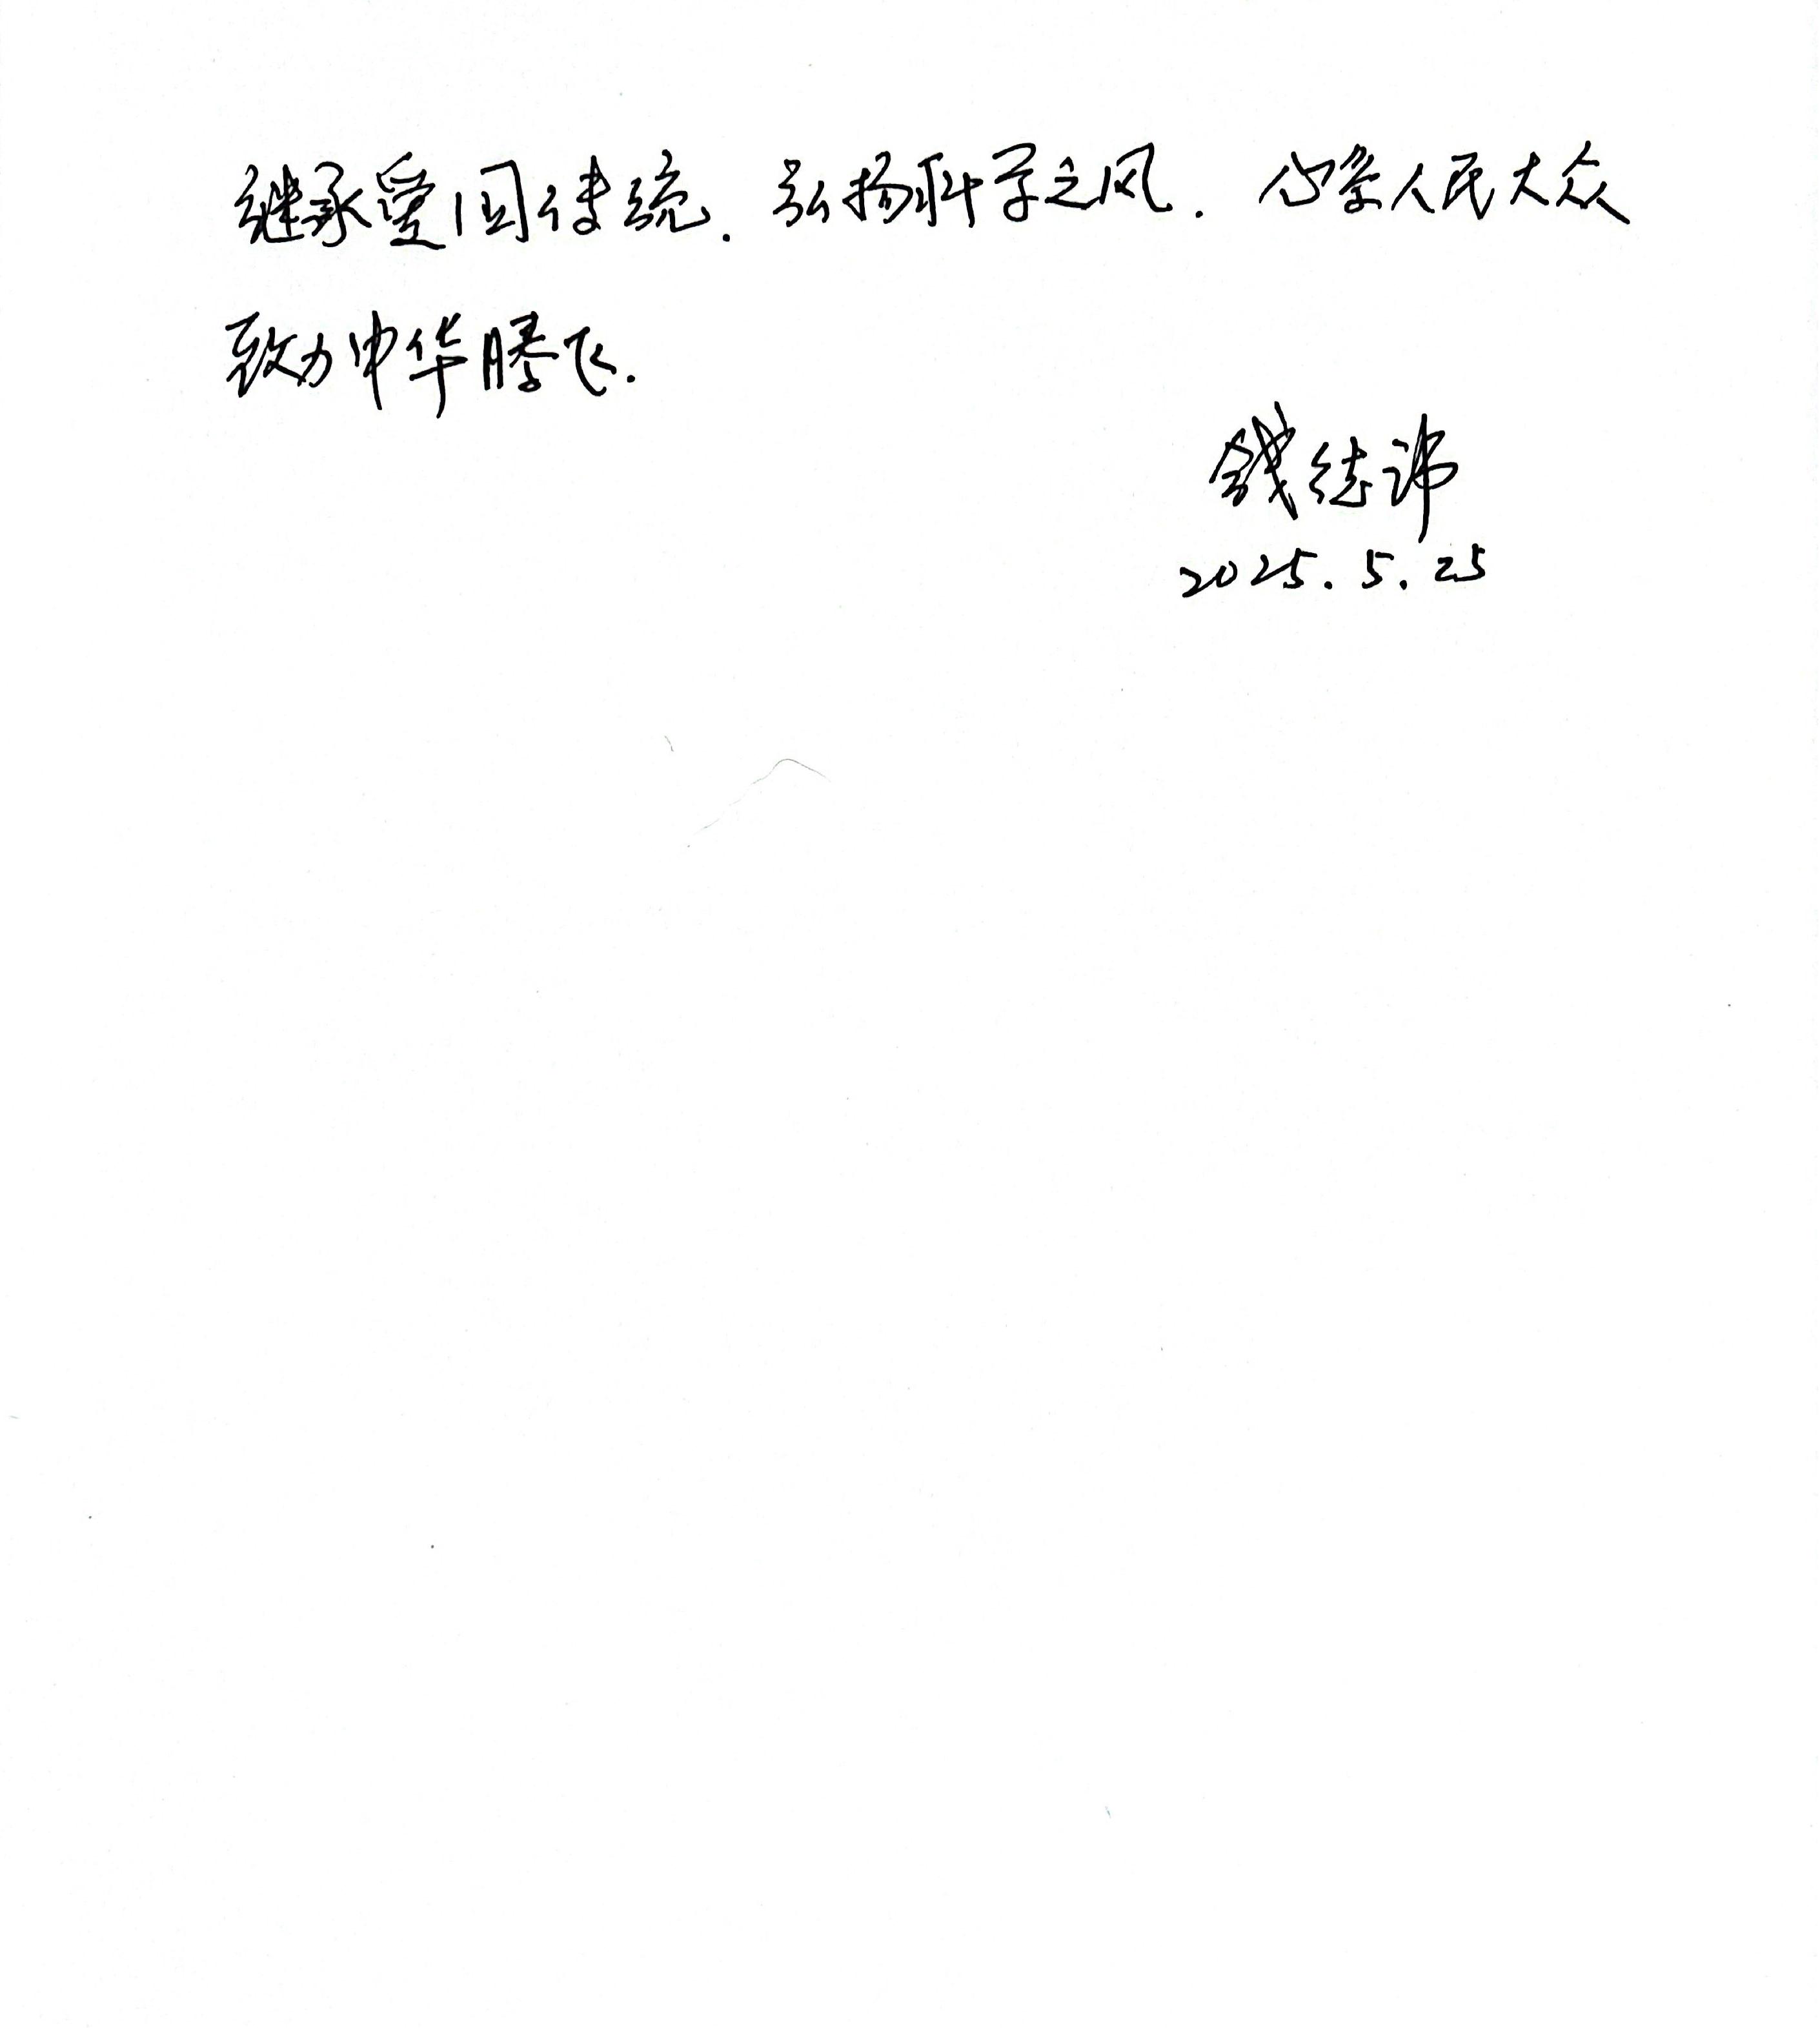 继承爱国传统. 弘扬科学之风. 心系人民大众
致力中华腾飞.
钱绮
2025.5.25